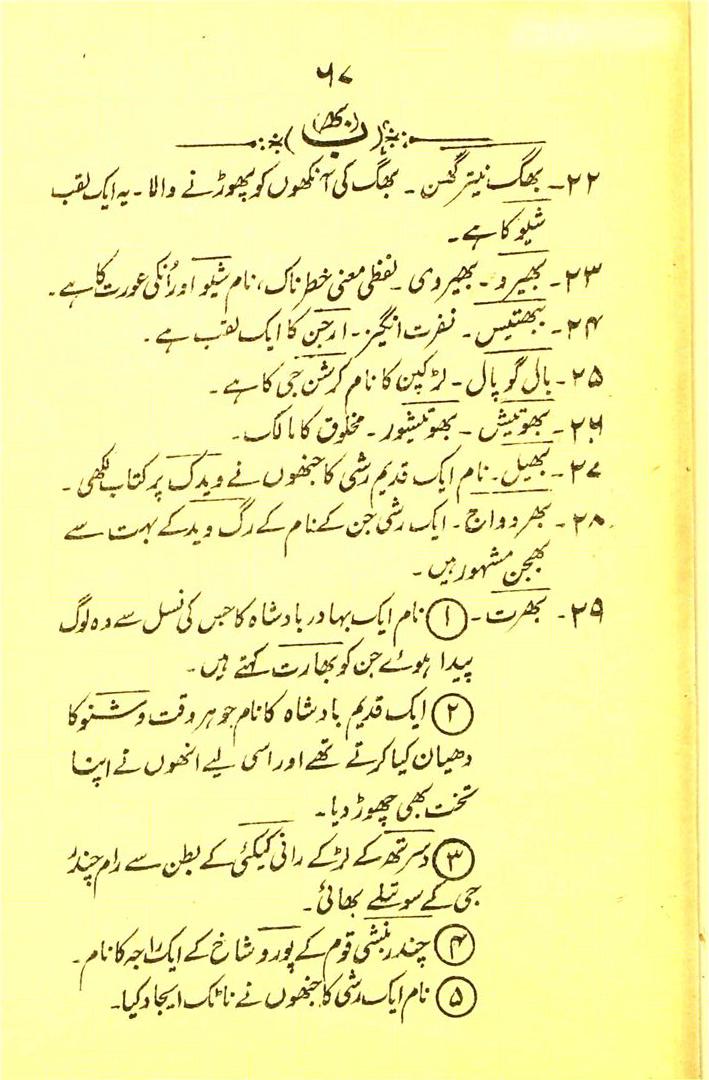 ۶۷
ب (بھ)
۲۲۔ بھگ نیتر گھن۔ بھگ کی آنکھوں کو پھوڑنے والا۔ یہ ایک لقب
شیو کا ہے۔
۲۳۔ بھیرو۔ بھیروی۔ لفظی معنی خطرناک، نام شیو اور اُنکی عورت کا ہے۔
۲۴۔ بیبھتیس۔ نفرت انگیز۔ ارجن کا ایک لقب ہے۔
۲۵۔ بالی گوپال۔ لڑکپن کا نام کرشن جی کا ہے۔
۲۶۔ بھوتیش۔ بھوتیشور۔ مخلوق کا مالک۔
۲۷۔ بھیل۔ نام ایک قدیم رشی کا جنھوں نے ویدک پر کتاب لکھی۔
۲۸۔ بھردواج۔ ایک رشی جن کے نام کے رگ وید کے بہت سے
بھجن مشہور ہیں۔
۲۹۔ بھرت۔ ۱ نام ایک بہادر بادشاہ کا جس کی نسل سے وہ لوگ
پیدا ہوئے جن کو بھارت کہتے ہیں۔
۲ ایک قدیم بادشاہ کا نام جو ہر وقت وشنو کا
دھیان کیا کرتے تھے اور اسی لیے انھوں نے اپنا
تخت بھی چھوڑ دیا۔
۳ دسرتھ کے لڑکے رانی کیکئی کے بطن سے رام چندر
جی کے سوتیلے بھائی۔
۴ چندر بنشی قوم کے پورو شاخ کے ایک راجہ کا نام۔
۵ نام ایک رشی کا جنھوں نے ناٹک ایجاد کیا۔